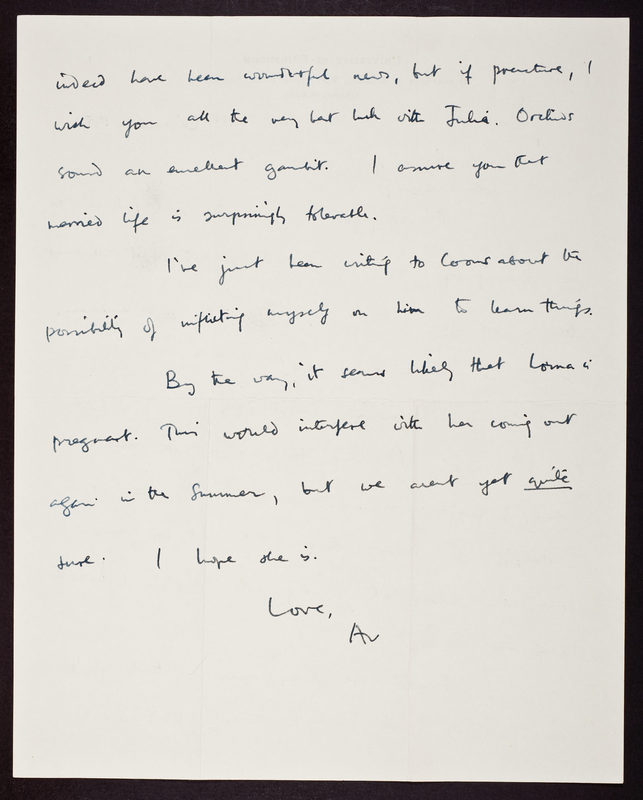 indeed have been wonderful news, but if premature, I
wish you all the very best luck with Julia. Orchids
sound an excellent gambit. I assure you that
married life is surprisingly tolerable.
I've just been writing to Coons about the
possibility of inflicting myself on him to learn things.
By the way, it seems likely that Lorna is
pregnant. This would interfere with her coming out
again in the Summer, but we aren't yet quite
sure. I hope she is.
Love,
Av